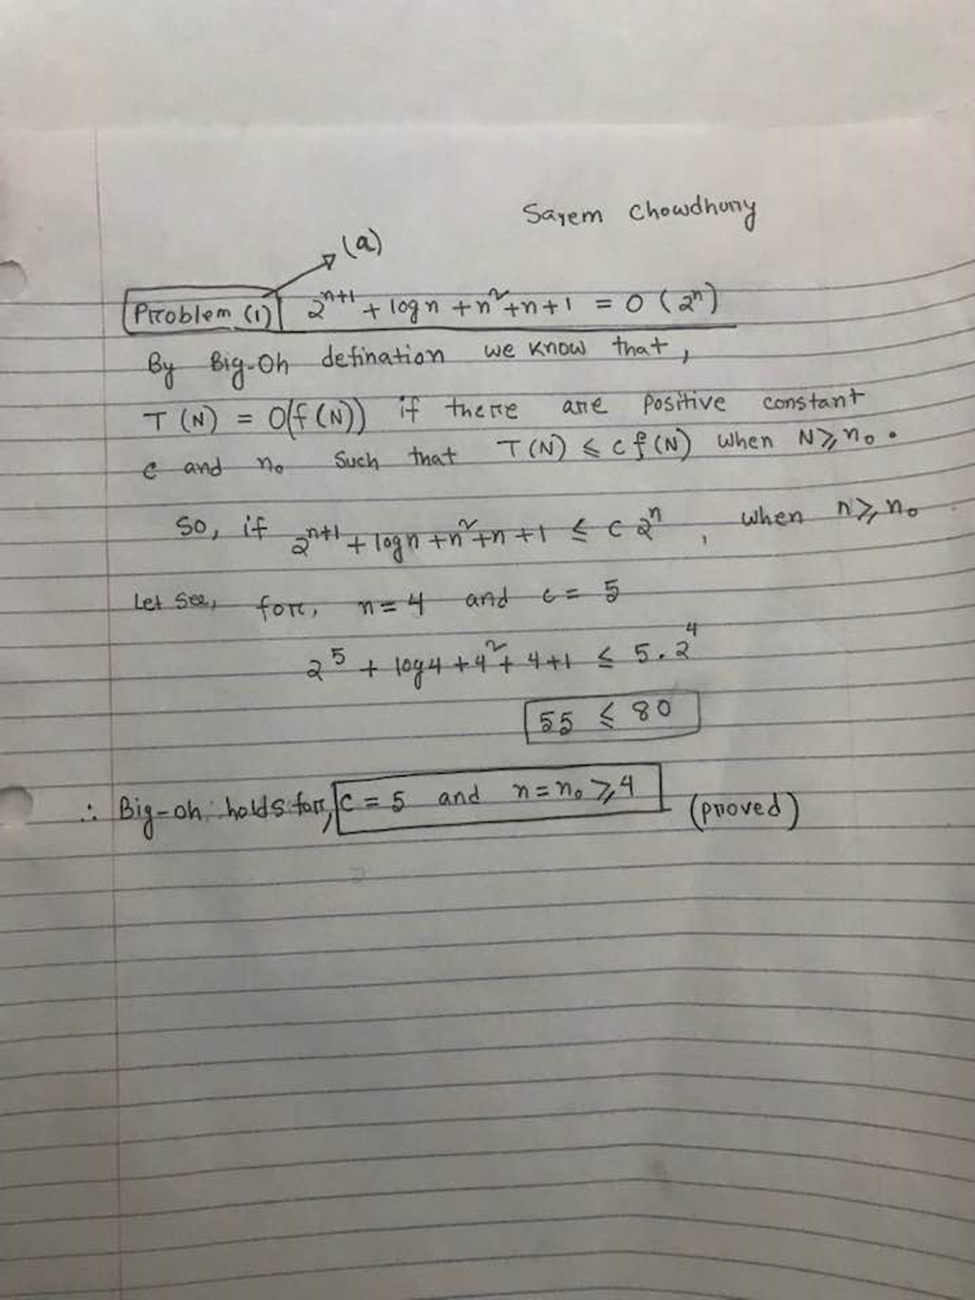 Sayem Chowdhury
(a)
Problem (1) 2^{n+1} + log n + n² + n + 1 = O (2ⁿ)
By Big-Oh defination we know that,
T (N) = O(f (N)) if there are positive constant
c and n₀ such that T (N) ≤ c f (N) when N ≥ n₀.
So, if 2^{n+1} + log n + n² + n + 1 ≤ c 2ⁿ, when n ≥ n₀
Let see, for, n = 4 and c = 5
2⁵ + log 4 + 4² + 4 + 1 ≤ 5 . 2⁴
55 ≤ 80
∴ Big-oh holds for, c = 5 and n = n₀ ≥ 4 (proved)